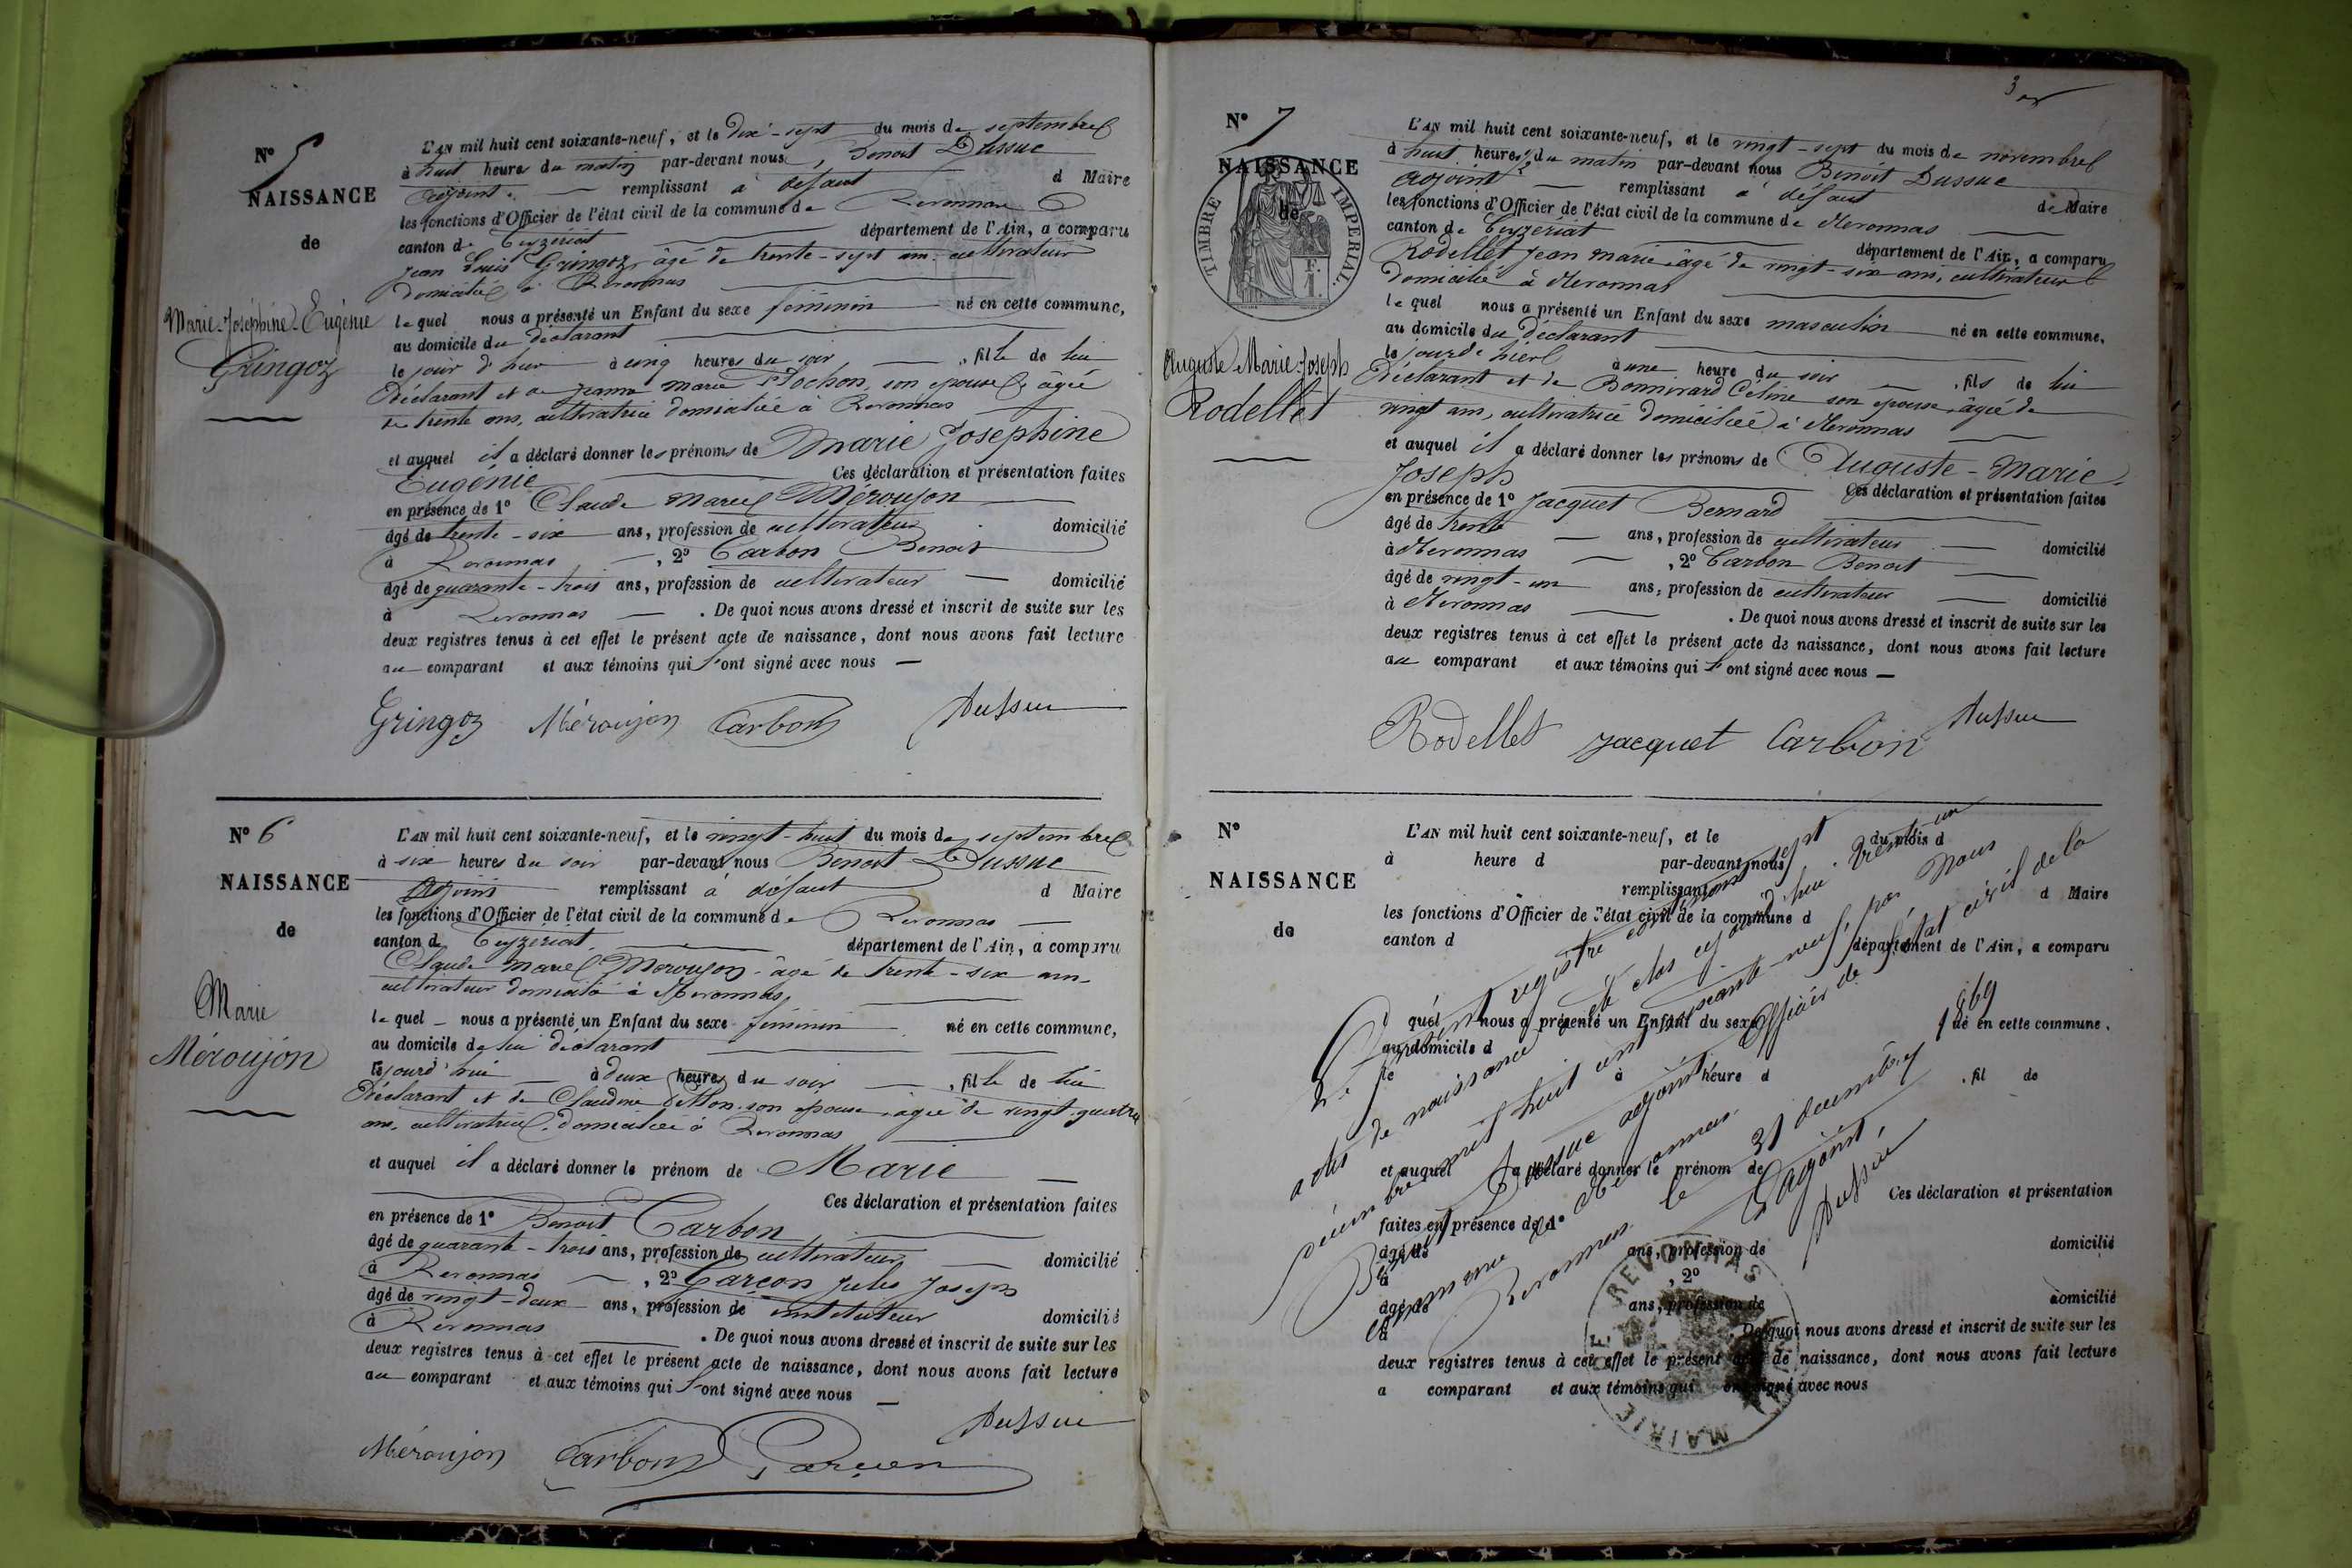 N° 5
NAISSANCE
de
Marie-Joséphine-Eugénie
Gringoz
L'AN mil huit cent soixante-neuf, et le dix-sept du mois de septembre
à huit heure du matin par-devant nous, Benoit Dussuc
adjoint remplissant à défaut d Maire
les fonctions d'Officier de l'état civil de la commune de Revonnas
canton de Ceyzériat département de l'Ain, a comparu
Jean Louis Gringoz, âgé de trente-sept ans cultivateur
domicilié à Revonnas
le quel nous a présenté un Enfant du sexe féminin né en cette commune,
au domicile du déclarant
le jour d'hier à cinq heures du soir, fille de lui
Déclarant et de Jeanne Marie son épouse âgée
de trente ans, cultivatrice domiciliée à Revonnas
et auquel il a déclaré donner les prénoms de Marie Josephine
Eugénie Ces déclaration et présentation faites
en présence de 1° Claude Marie Méroujon
âgé de trente-six ans, profession de cultivateur domicilié
à Revonnas, 2° Carbon Benoit
âgé de quarante-trois ans, profession de cultivateur domicilié
à Revonnas. De quoi nous avons dressé et inscrit de suite sur les
deux registres tenus à cet effet le présent acte de naissance, dont nous avons fait lecture
au comparant et aux témoins qui l'ont signé avec nous
Gringoz Méroujon Carbon Dussuc
N° 6
NAISSANCE
de
Marie
Méroujon
L'AN mil huit cent soixante-neuf, et le vingt-huit du mois de septembre
à six heures du soir par-devant nous Benoit Dussuc
Adjoint remplissant à défaut d Maire
les fonctions d'Officier de l'état civil de la commune de Revonnas
canton de Ceyzériat département de l'Ain, a comparu
Claude Marie Méroujon âgé de trente-six ans
cultivateur domicilié à Revonnas
le quel nous a présenté un Enfant du sexe féminin né en cette commune,
au domicile de lui déclarant
à deux heures du soir, fille de lui
Déclarant et de Claudine son épouse âgée de vingt-quatre
ans, cultivatrice domiciliée à Revonnas
et auquel il a déclaré donner le prénom de Marie
Ces déclaration et présentation faites
en présence de 1° Benoit Carbon
âgé de quarante-trois ans, profession de cultivateur domicilié
à Revonnas, 2° Garçon Jules Joseph
âgé de vingt-deux ans, profession de instituteur domicilié
à Revonnas. De quoi nous avons dressé et inscrit de suite sur les
deux registres tenus à cet effet le présent acte de naissance, dont nous avons fait lecture
au comparant et aux témoins qui l'ont signé avec nous
Dussuc
Méroujon Carbon Garçon
3
N° 7
NAISSANCE
de
TIMBRE IMPERIAL
Auguste-Marie-Joseph
Rodellet
L'AN mil huit cent soixante-neuf, et le vingt-sept du mois de novembre
à huit heures du matin par-devant nous Benoit Dussuc
adjoint remplissant à défaut de Maire
les fonctions d'Officier de l'état civil de la commune de Revonnas
canton de Ceyzériat département de l'Ain, a comparu
Rodellet Jean Marie âgé de vingt-six ans, cultivateur
domicilié à Revonnas
le quel nous a présenté un Enfant du sexe masculin né en cette commune,
au domicile du déclarant
le jour de hier à une heure du soir, fils de lui
Déclarant et de Bonnivard Céline son épouse âgée de
vingt ans, cultivatrice domiciliée à Revonnas
et auquel il a déclaré donner les prénoms de Auguste-Marie-
Joseph Ces déclaration et présentation faites
en présence de 1° Jacquet Bernard
âgé de trente ans, profession de cultivateur domicilié
à Revonnas, 2° Carbon Benoit
âgé de vingt-un ans, profession de cultivateur domicilié
à Revonnas. De quoi nous avons dressé et inscrit de suite sur les
deux registres tenus à cet effet le présent acte de naissance, dont nous avons fait lecture
au comparant et aux témoins qui l'ont signé avec nous
Rodellet Jacquet Carbon Dussuc
N°
NAISSANCE
de
L'AN mil huit cent soixante-neuf, et le du mois d
à heure d par-devant nous
remplissant d Maire
les fonctions d'Officier de l'état civil de la commune d
canton d département de l'Ain, a comparu
l quel nous a présenté un Enfant du sexe né en cette commune,
au domicile d
le à heure d, fil de
et auquel a déclaré donner le prénom de
Ces déclaration et présentation
faites en présence de 1°
âgé de ans, profession de domicilié
à, 2°
âgé de ans, profession de domicilié
à. De quoi nous avons dressé et inscrit de suite sur les
deux registres tenus à cet effet le présent acte de naissance, dont nous avons fait lecture
a comparant et aux témoins qui ont signé avec nous
Le présent registre contenant sept
actes de naissance a été clos ce jourd'hui trente-un
décembre mil huit cent soixante-neuf, par Nous
Benoit Dussuc adjoint Officier de l'état civil de la
commune de Revonnas.
Revonnas le 31 décembre 1869
L'adjoint,
Dussuc
MAIRIE DE REVONNAS